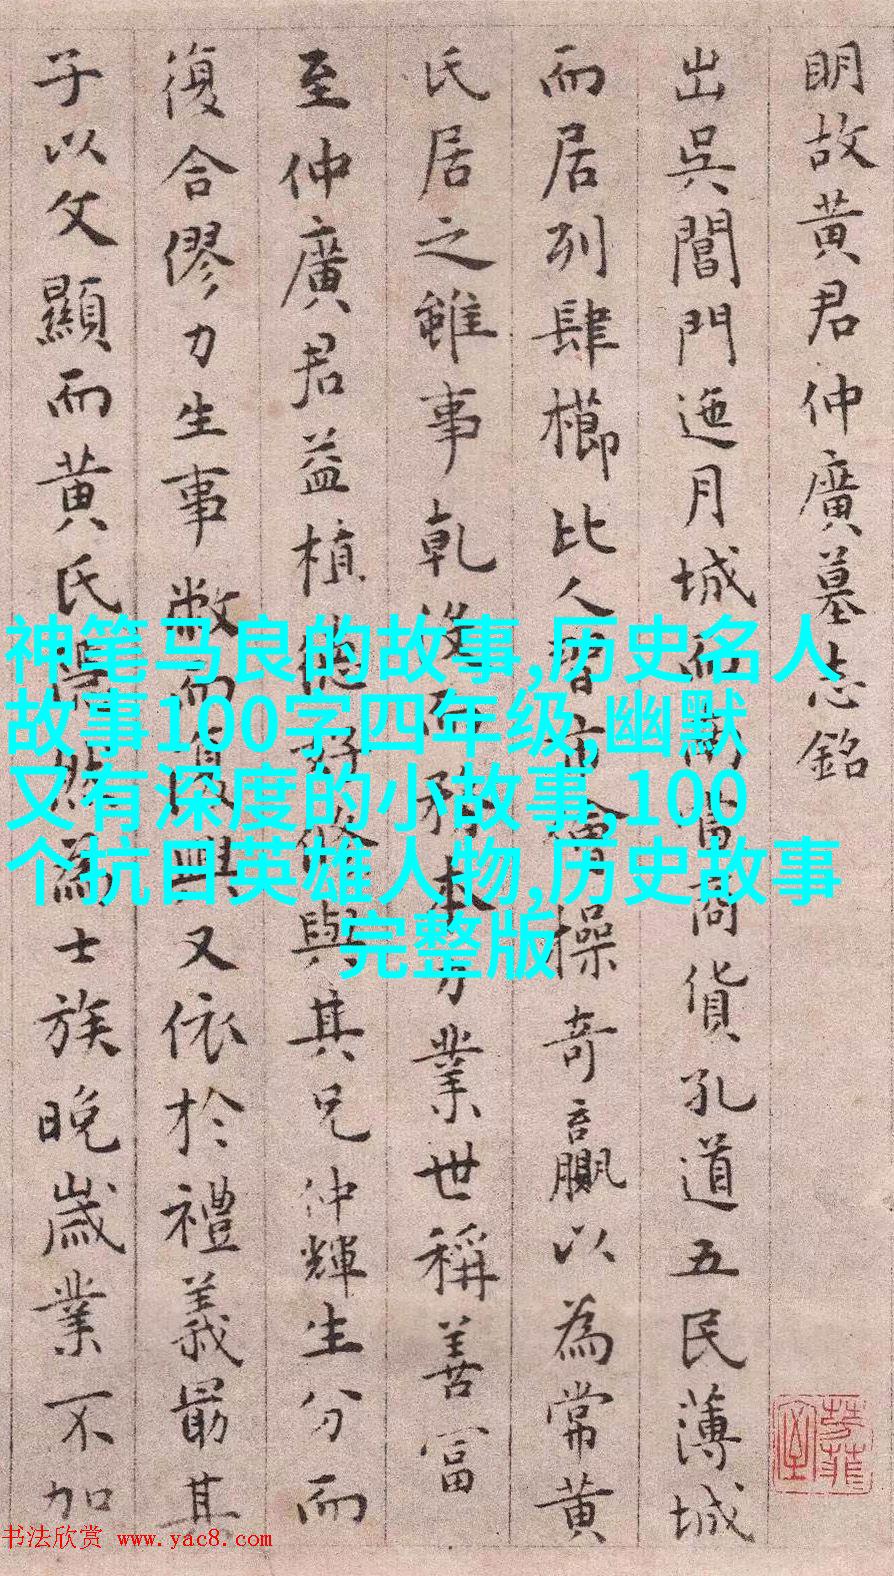 明故黄君仲廣墓志銘
出吳閶門迤月城而南當商貨孔道五民薄城
而居列肆櫛比人習市會操奇贏以為常黄
氏居之雖事乾没而務本力業世稱善富
至仲廣君益植德好脩與其兄仲輝生分而
復合僇力生事敝而復興又依於禮義最其
子以文顯而黄氏為士族晚歲業不加
神笔马良的故事,历史名人
故事100字四年级,幽默
又有深度的小故事,100
个抗日英雄人物,历史故事
完整版
书法欣赏 www.yac8.com